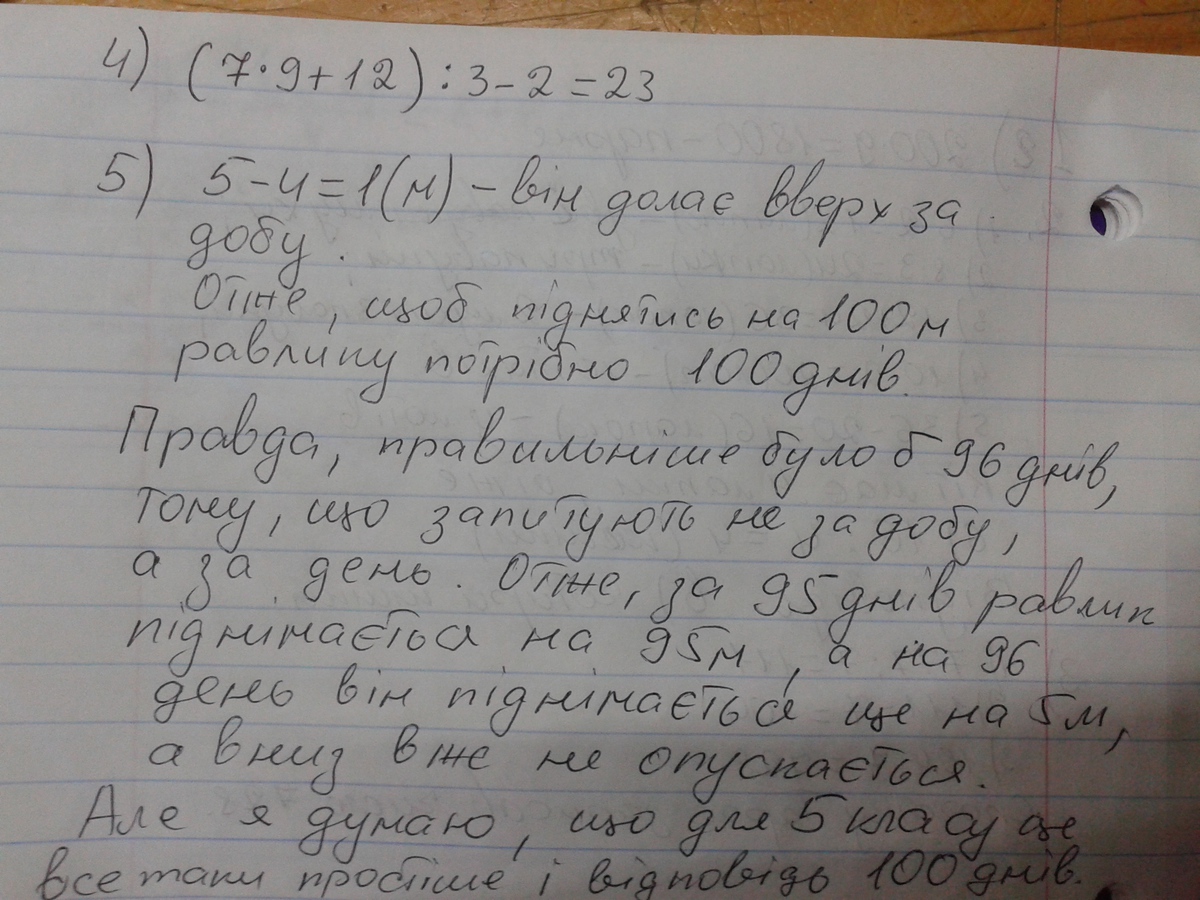 4) (7·9+12):3-2=23
5) 5-4=1(м) - він долає вверх за
добу.
Отже, щоб піднятись на 100м
равлику потрібно 100 днів.
Правда, правильніше було б 96 днів,
тому, що запитують не за добу,
а за день. Отже, за 95 днів равлик
піднімається на 95м, а на 96
день він піднімається ще на 5м,
а вниз вже не опускається.
Але я думаю, що для 5 класу це
все таки простіше і відповідь 100 днів.